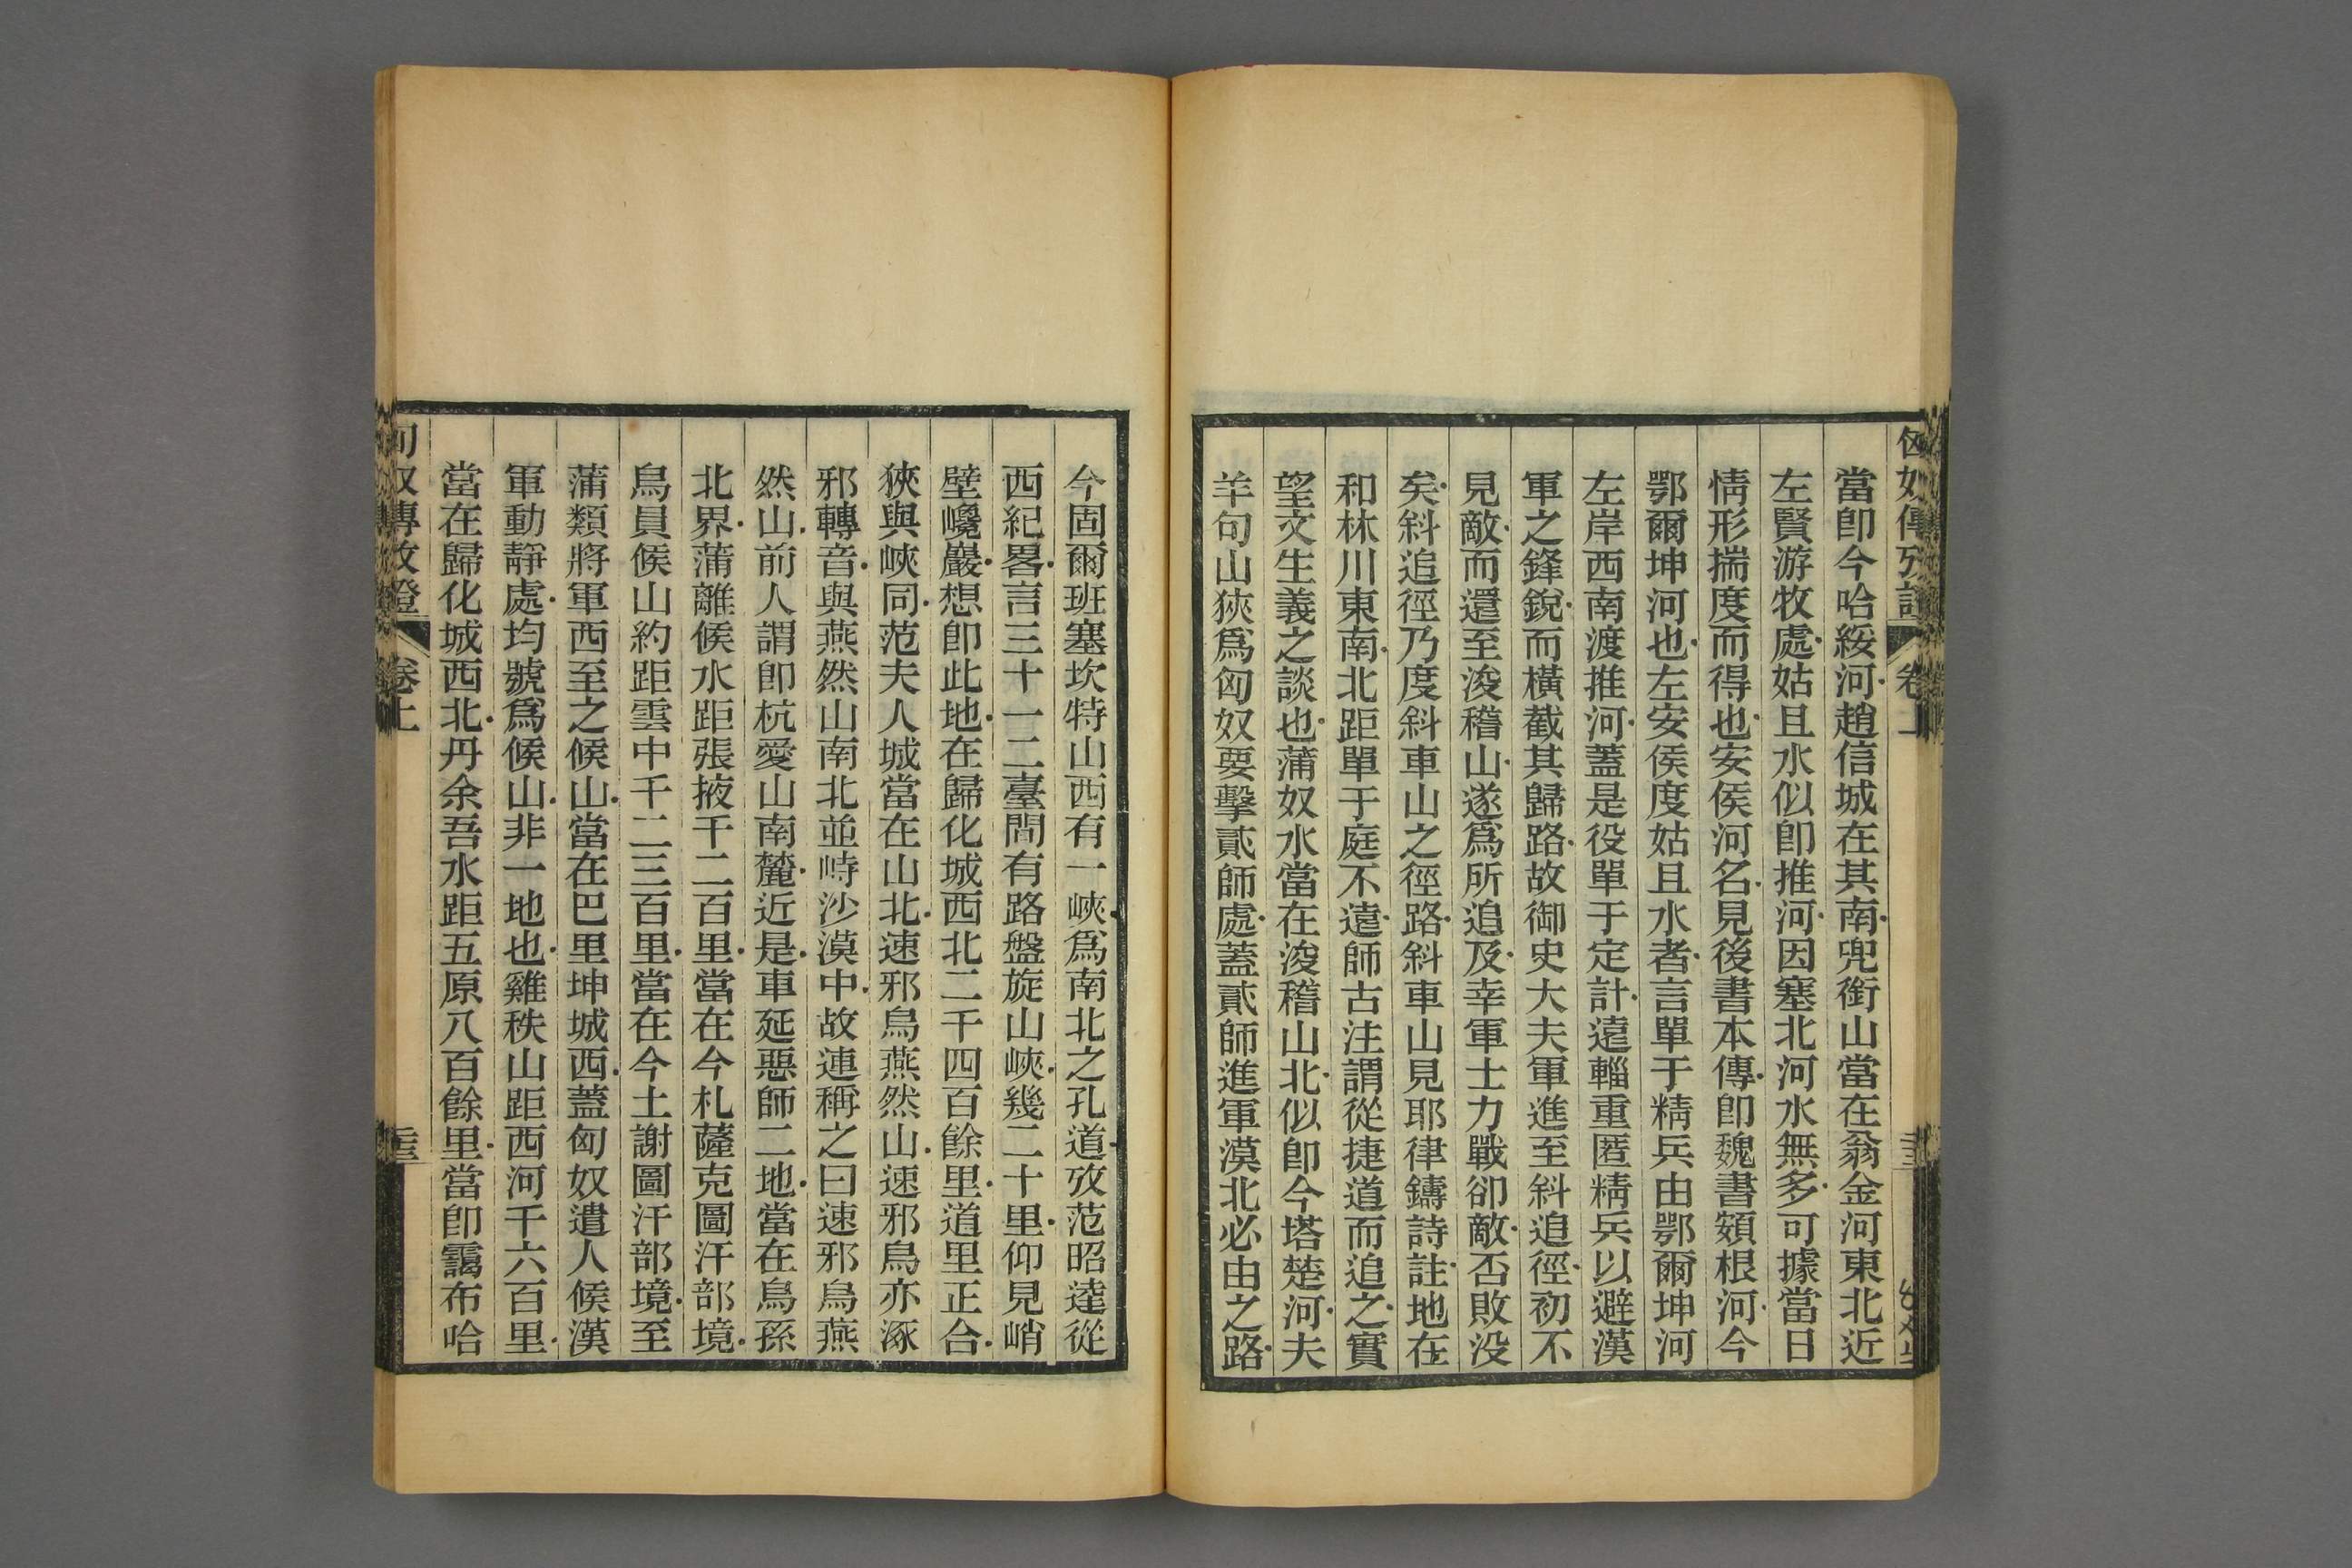 匈奴傳攷證 卷上
當卽今哈綏河趙信城在其南兜銜山當在翁金河東北近
左賢游牧處姑且水似卽推河因塞北河水無多可據當日
情形揣度而得也安侯河名見後書本傳卽魏書頞根河今
鄂爾坤河也左安侯度姑且水者言單于精兵由鄂爾坤河
左岸西南渡推河蓋是役單于定計遠輜重匿精兵以避漢
軍之鋒銳而橫截其歸路故御史大夫軍進至斜追徑初不
見敵而還至浚稽山遂爲所追及幸軍士力戰卻敵否敗没
矣斜追徑乃度斜車山之徑路斜車山見耶律鑄詩註地在
和林川東南北距單于庭不遠師古注謂從捷道而追之實
望文生義之談也蒲奴水當在浚稽山北似卽今塔楚河夫
羊句山狹爲匈奴要擊貳師處蓋貳師進軍漠北必由之路
今固爾班塞坎特山西有一峽爲南北之孔道攷范昭逵從
西紀畧言三十一二臺閒有路盤旋山峽幾二十里仰見峭
壁巉巖想卽此地在歸化城西北二千四百餘里道里正合
狹與峽同范夫人城當在山北速邪烏燕然山速邪烏亦涿
邪轉音與燕然山南北並峙沙漠中故連稱之曰速邪烏燕
然山前人謂卽杭愛山南麓近是車延惡師二地當在烏孫
北界蒲離候水距張掖千二百里當在今札薩克圖汗部境
烏員候山約距雲中千二三百里當在今土謝圖汗部境至
蒲類將軍西至之候山當在巴里坤城西蓋匈奴遣人候漢
軍動靜處均號爲候山非一地也雞秩山距西河千六百里
當在歸化城西北丹余吾水距五原八百餘里當卽靄布哈
匈奴傳攷證 卷上